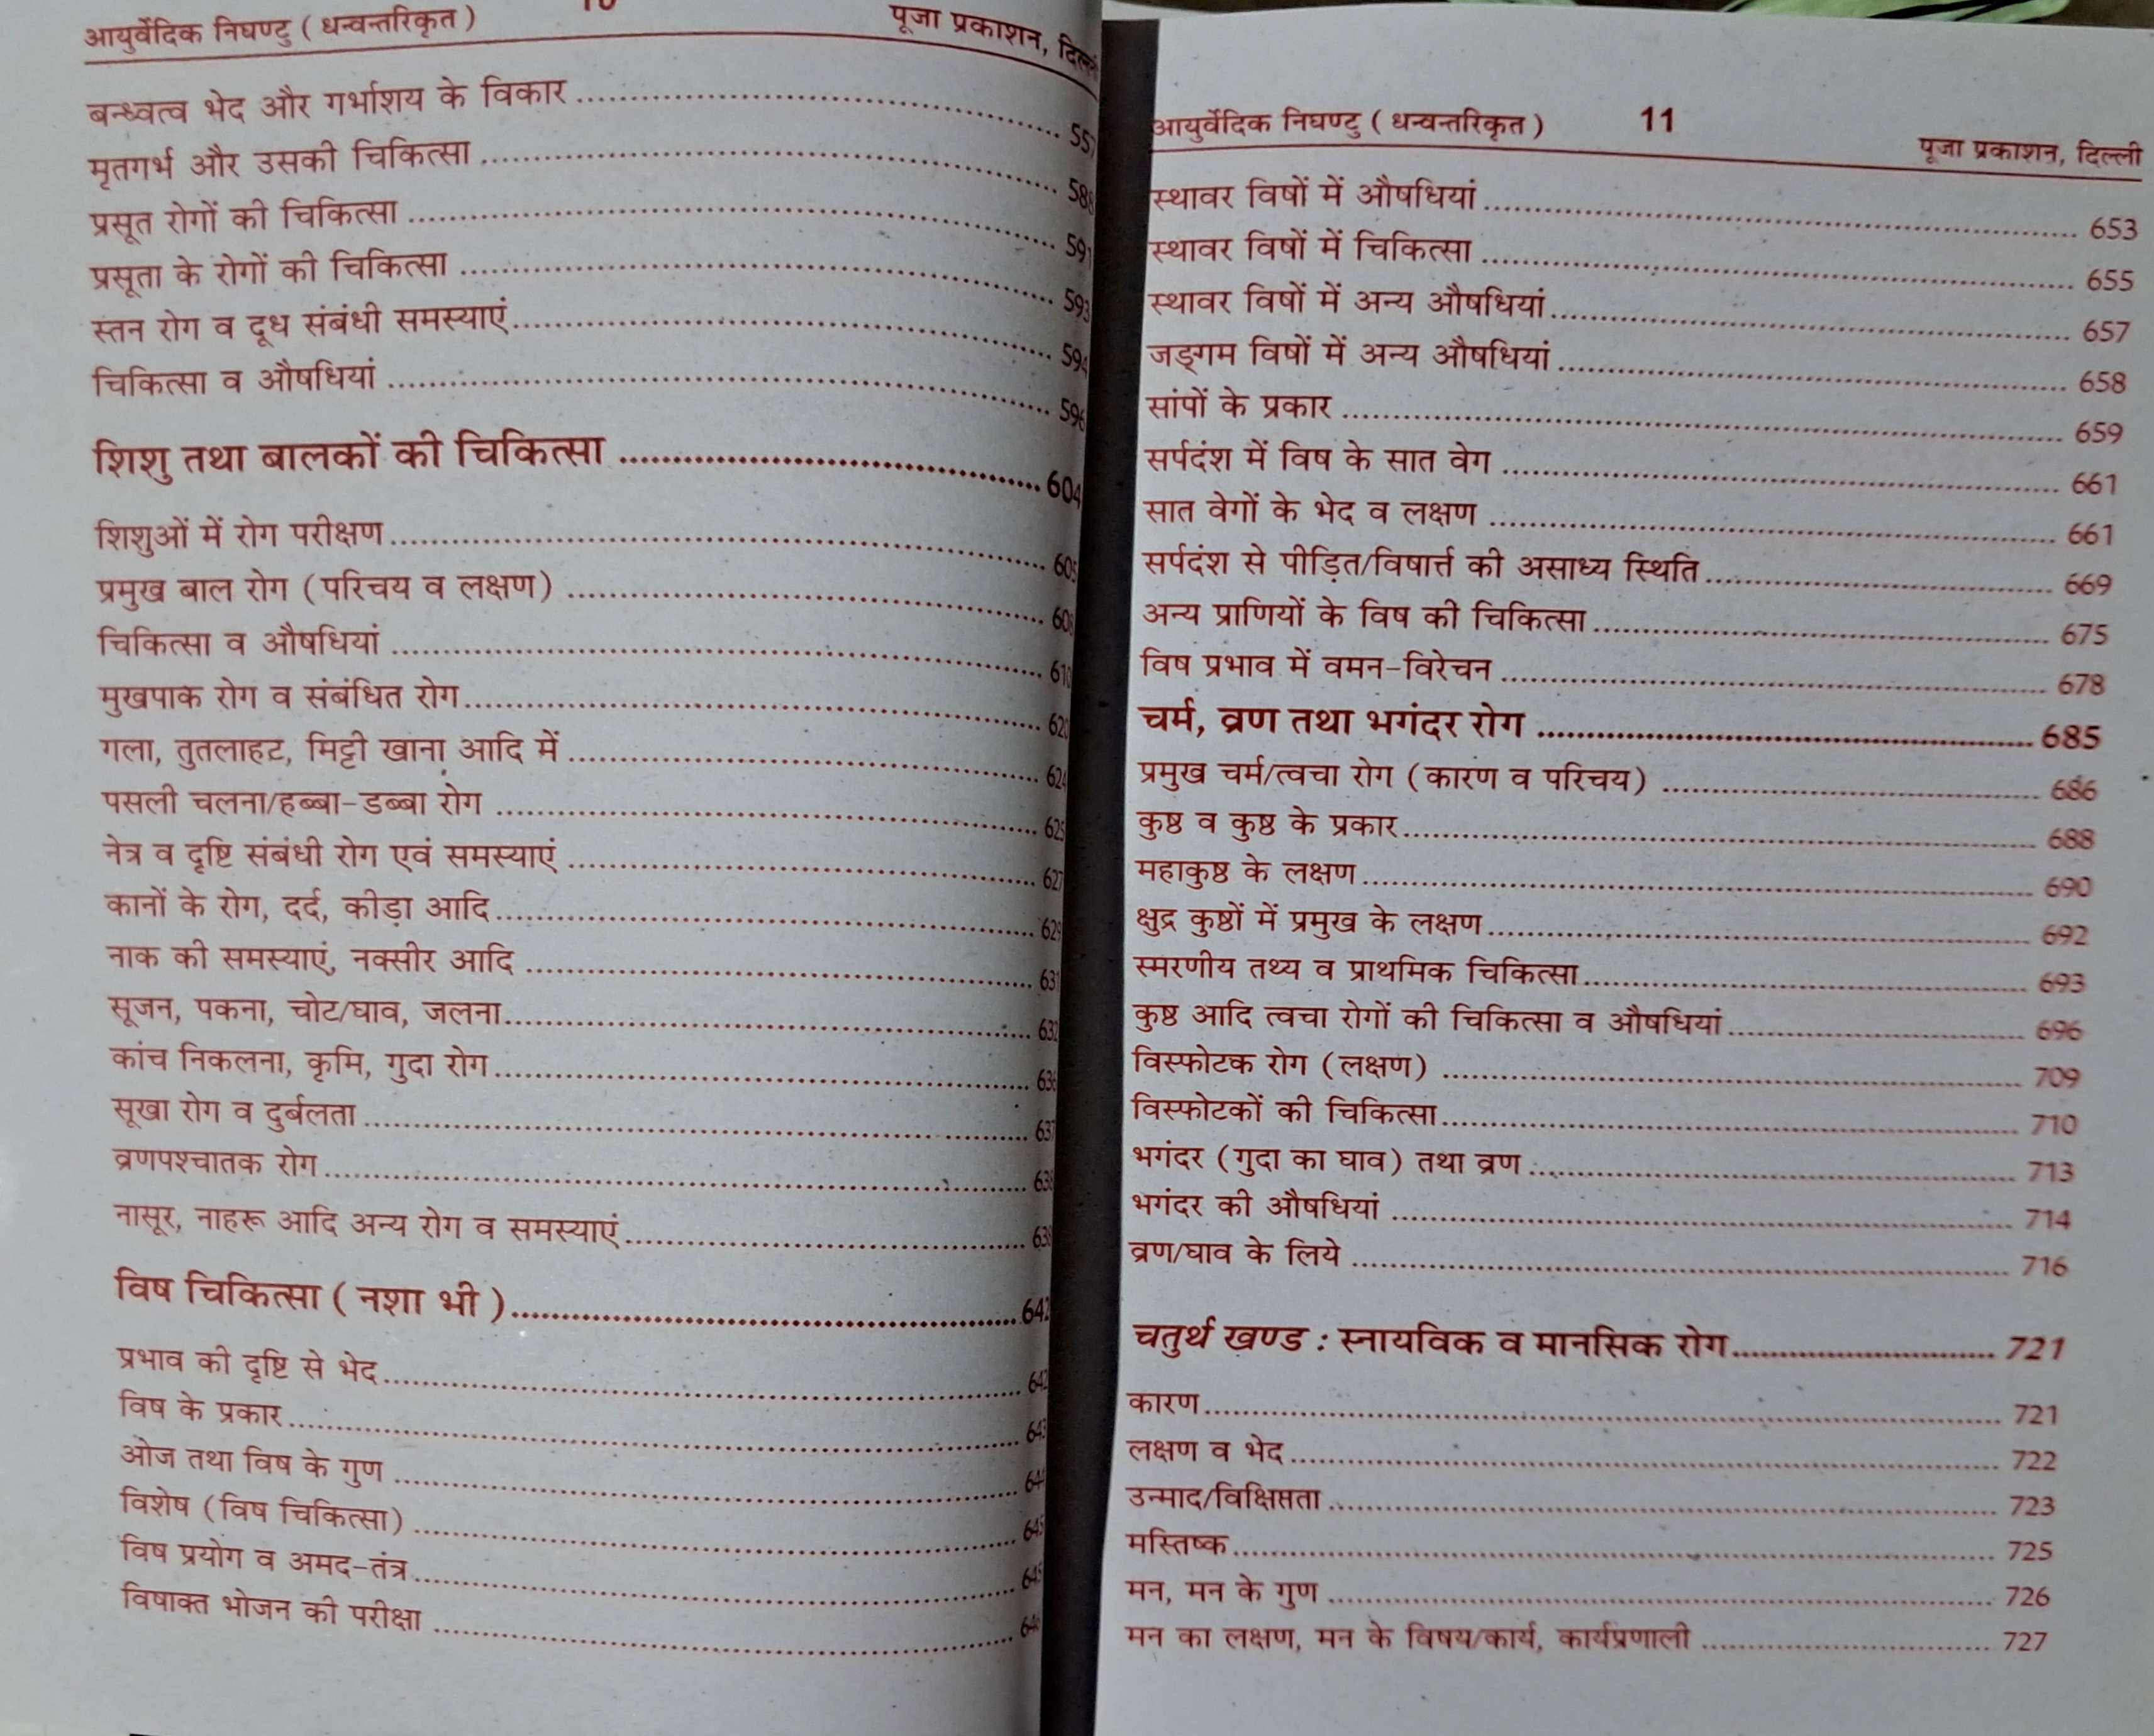 आयुर्वेदिक निघण्टु ( धन्वन्तरिकृत ) 10 पूजा प्रकाशन,
बन्ध्वत्व भेद और गर्भाशय के विकार ........ 557
मृतगर्भ और उसकी चिकित्सा ........ 588
प्रसूत रोगों की चिकित्सा ........ 591
प्रसूता के रोगों की चिकित्सा ........ 593
स्तन रोग व दूध संबंधी समस्याएं ........ 594
चिकित्सा व औषधियां ........ 596
शिशु तथा बालकों की चिकित्सा ........ 604
शिशुओं में रोग परीक्षण ........ 605
प्रमुख बाल रोग (परिचय व लक्षण) ........
चिकित्सा व औषधियां ........
मुखपाक रोग व संबंधित रोग ........
गला, तुतलाहट, मिट्टी खाना आदि में ........ 624
पसली चलना/हब्बा-डब्बा रोग ........ 625
नेत्र व दृष्टि संबंधी रोग एवं समस्याएं ........ 627
कानों के रोग, दर्द, कीड़ा आदि ........ 629
नाक की समस्याएं, नक्सीर आदि ........ 631
सूजन, पकना, चोट/घाव, जलना ........ 632
कांच निकलना, कृमि, गुदा रोग ........ 636
सूखा रोग व दुर्बलता ........ 637
व्रणपश्चातक रोग ........
नासूर, नाहरू आदि अन्य रोग व समस्याएं ........
विष चिकित्सा ( नशा भी ) ........ 642
प्रभाव की दृष्टि से भेद ........ 642
विष के प्रकार ........ 643
ओज तथा विष के गुण ........ 644
विशेष (विष चिकित्सा) ........ 645
विष प्रयोग व अमद-तंत्र ........ 645
विषाक्त भोजन की परीक्षा ........
आयुर्वेदिक निघण्टु ( धन्वन्तरिकृत ) 11 पूजा प्रकाशन, दिल्ली
स्थावर विषों में औषधियां ........ 653
स्थावर विषों में चिकित्सा ........ 655
स्थावर विषों में अन्य औषधियां ........ 657
जङ्गम विषों में अन्य औषधियां ........ 658
सांपों के प्रकार ........ 659
सर्पदंश में विष के सात वेग ........ 661
सात वेगों के भेद व लक्षण ........ 661
सर्पदंश से पीड़ित/विषार्त्त की असाध्य स्थिति ........ 669
अन्य प्राणियों के विष की चिकित्सा ........ 675
विष प्रभाव में वमन-विरेचन ........ 678
चर्म, व्रण तथा भगंदर रोग ........ 685
प्रमुख चर्म/त्वचा रोग (कारण व परिचय) ........ 686
कुष्ठ व कुष्ठ के प्रकार ........ 688
महाकुष्ठ के लक्षण ........ 690
क्षुद्र कुष्ठों में प्रमुख के लक्षण ........ 692
स्मरणीय तथ्य व प्राथमिक चिकित्सा ........ 693
कुष्ठ आदि त्वचा रोगों की चिकित्सा व औषधियां ........ 696
विस्फोटक रोग (लक्षण) ........ 709
विस्फोटकों की चिकित्सा ........ 710
भगंदर (गुदा का घाव) तथा व्रण ........ 713
भगंदर की औषधियां ........ 714
व्रण/घाव के लिये ........ 716
चतुर्थ खण्ड : स्नायविक व मानसिक रोग ........ 721
कारण ........ 721
लक्षण व भेद ........ 722
उन्माद/विक्षिप्तता ........ 723
मस्तिष्क ........ 725
मन, मन के गुण ........ 726
मन का लक्षण, मन के विषय/कार्य, कार्यप्रणाली ........ 727